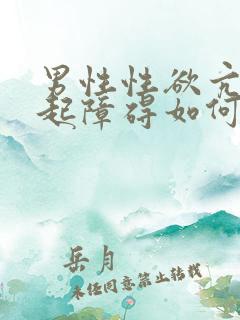 男性性欲亢
起障碍如何
岳月
未经同意禁止转载